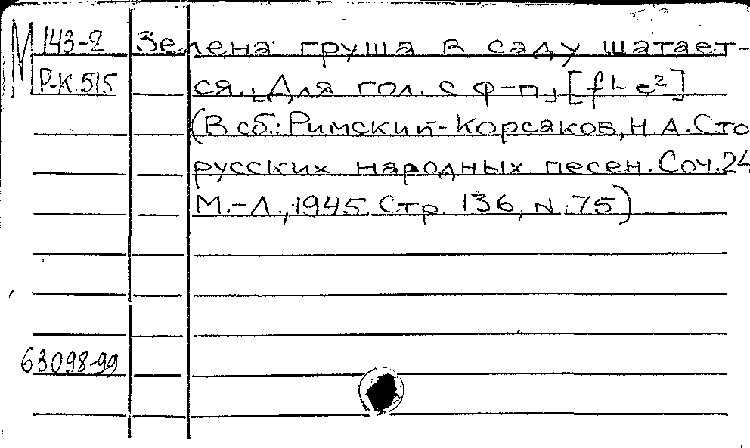 М 143-2 Зелена груша в саду шатает-
Р-К 515 ся. [Для гол. с ф-п.] [f1-c2]
(В сб.: Римский-Корсаков, Н.А. Сто
русских народных песен. Соч. 24
М.-Л., 1945. Стр. 136, N. 75)
63098-99